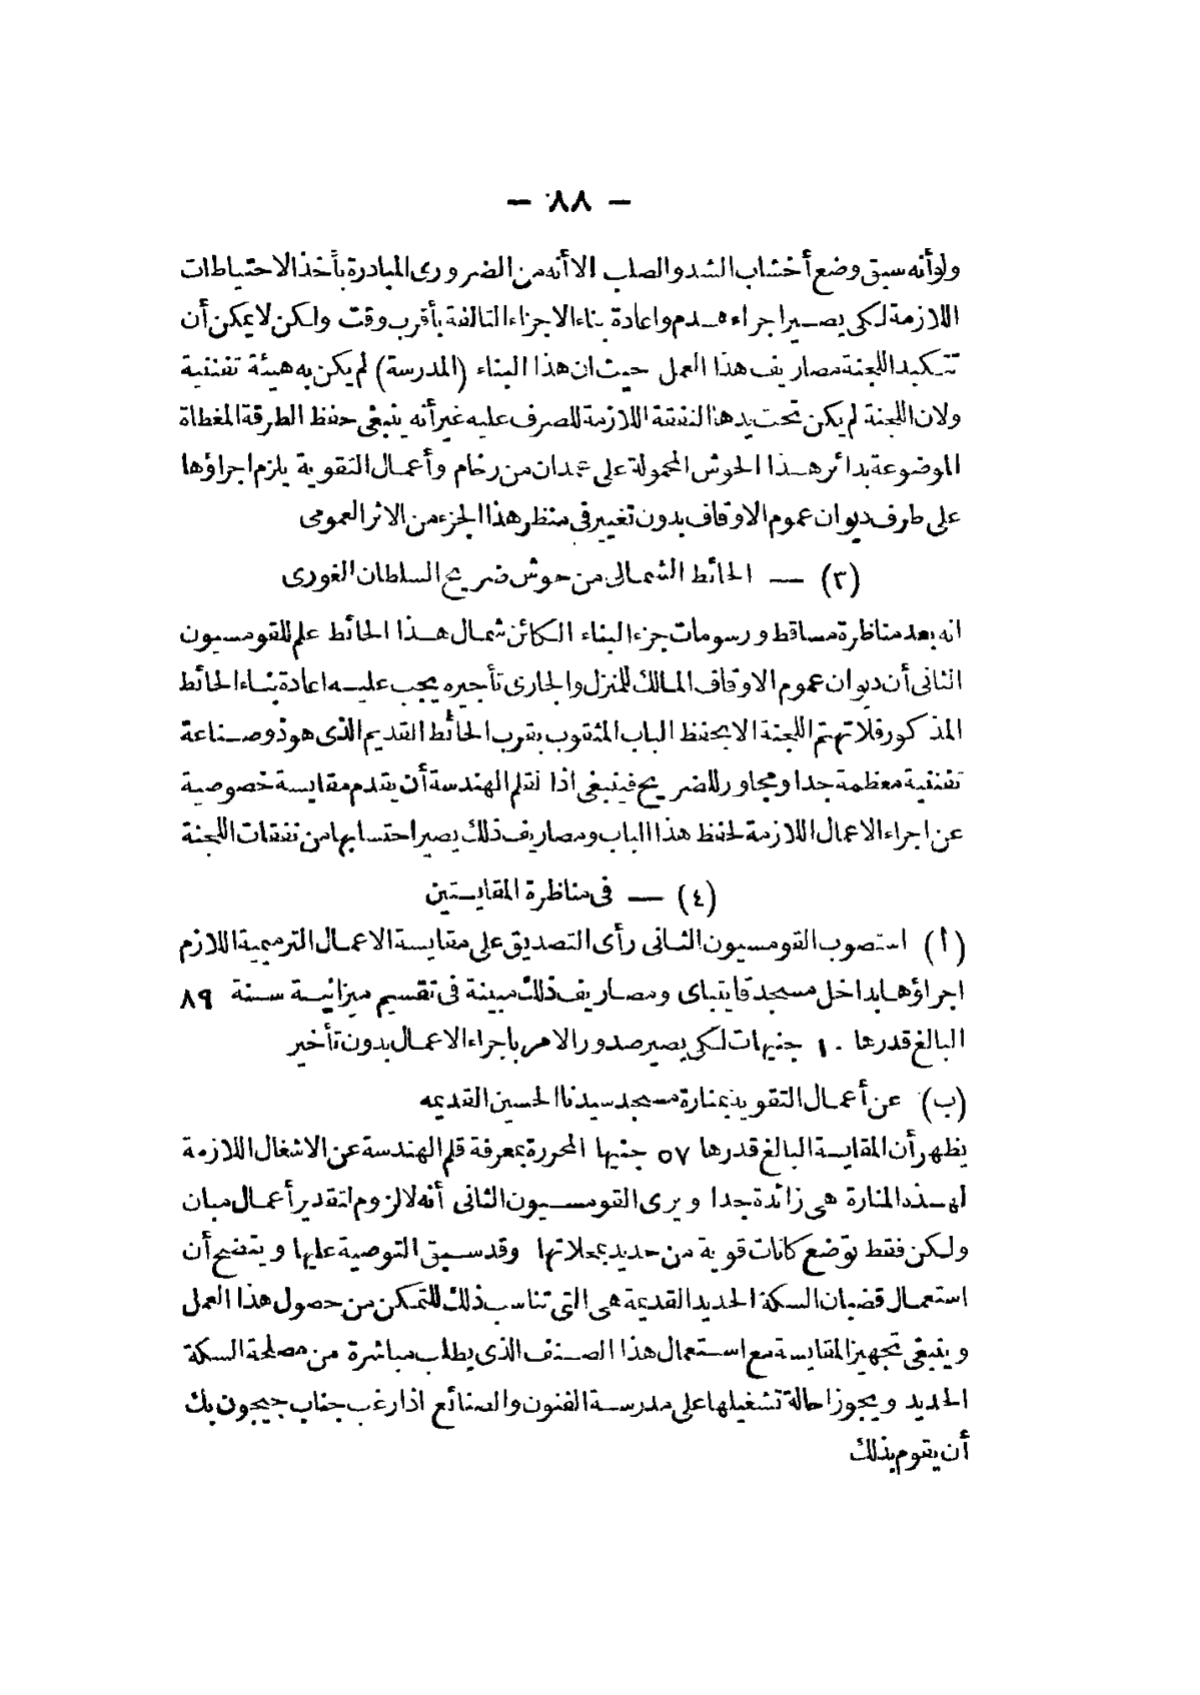 — ٨٨ —
ولو أنه سبق وضع أخشاب الشد والصلب الا أنه من الضرورى المبادرة بأخذ الاحتياطات
اللازمة لكى يصير اجراء هدم واعادة بناء الاجزاء التالفة بأقرب وقت ولكن لا يمكن أن
تتكبد اللجنة مصاريف هذا العمل حيث ان هذا البناء (المدرسة) لم يكن به هيئة تفننية
ولان اللجنة لم يكن تحت يدها النفقة اللازمة للصرف عليه غير أنه ينبغى حفظ الطرقة المغطاة
الموضوعة بدائر هذا الحوش المحمولة على عمدان من رخام وأعمال التقوية يلزم اجراؤها
على طرف ديوان عموم الاوقاف بدون تغيير فى منظر هذا الجزء من الاثر العمومى
(٣) — الحائط الشمالى من حوش ضريح السلطان الغورى
انه بعد مناظرة مساقط ورسومات جزء البناء الكائن شمال هذا الحائط علم للقومسيون
الثانى أن ديوان عموم الاوقاف المالك للمنزل والجارى تأجيره يجب عليه اعادة بناء الحائط
المذكور فلا تهتم اللجنة الا بحفظ الباب المثقوب بقرب الحائط القديم الذى هو ذو صناعة
تفننية معظمة جدا ومجاور للضريح فينبغى اذا لقلم الهندسة أن يقدم مقايسة خصوصية
عن اجراء الاعمال اللازمة لحفظ هذا الباب ومصاريف ذلك يصير احتسابها من نفقات اللجنة
(٤) — فى مناظرة المقايستين
(أ) استصوب القومسيون الثانى رأى التصديق على مقايسة الاعمال الترميمية اللازم
اجراؤها بداخل مسجد قايتباى ومصاريف ذلك مبينة فى تقسيم ميزانية سنة ٨٩
البالغ قدرها ١٠ جنيهات لكى يصير صدور الامر باجراء الاعمال بدون تأخير
(ب) عن أعمال التقوية بمنارة مسجد سيدنا الحسين القديمه
يظهر أن المقايسة البالغ قدرها ٥٧ جنيها المحررة بمعرفة قلم الهندسة عن الاشغال اللازمة
لهذه المنارة هى زائدة جدا ويرى القومسيون الثانى أنه لا لزوم لتقدير أعمال مبان
ولكن فقط توضع كانات قوية من حديد بمحلاتها وقد سبق التوصية عليها ويتضح أن
استعمال قضبان السكة الحديد القديمة هى التى تناسب ذلك للتمكن من حصول هذا العمل
وينبغى تجهيز المقايسة مع استعمال هذا الصنف الذى يطلب مباشرة من مصلحة السكة
الحديد ويجوز احالة تشغيلها على مدرسة الفنون والصنائع اذا رغب جناب جيجون بك
أن يقوم بذلك